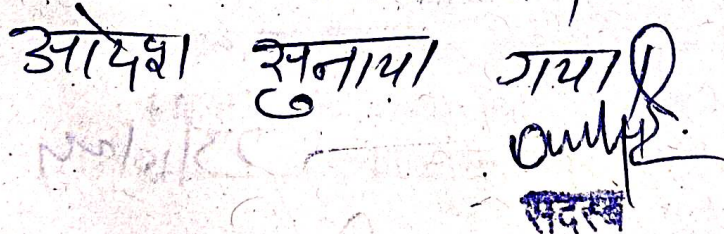 आदेश सुनाया गया
सदस्य